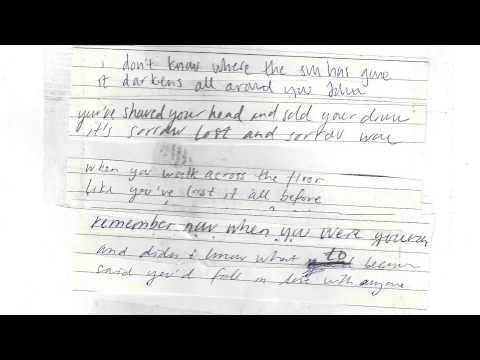 i don't know where the sun has gone
it darkens all around you John
you've shaved your head and sold your drum
it's sorrow lost and sorrow won
when you walk across the floor
like you've lost it all before
remember now when you were young
and didn't know what to become
said you'd fall in love with anyone